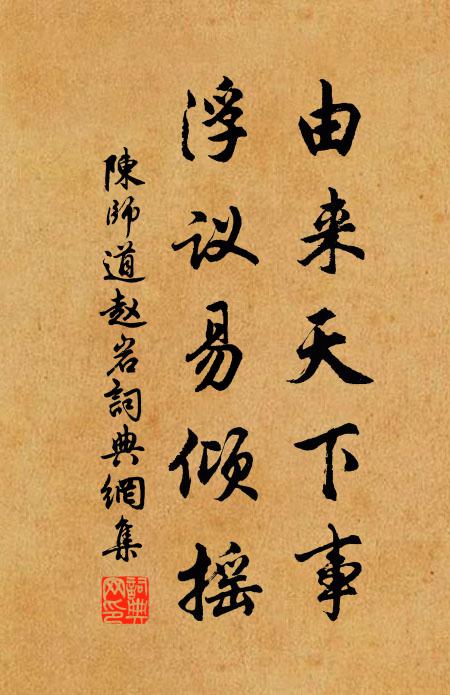 由来天下事
浮议易倾摇
陳師道赵岩詞典網集
詞典
网印